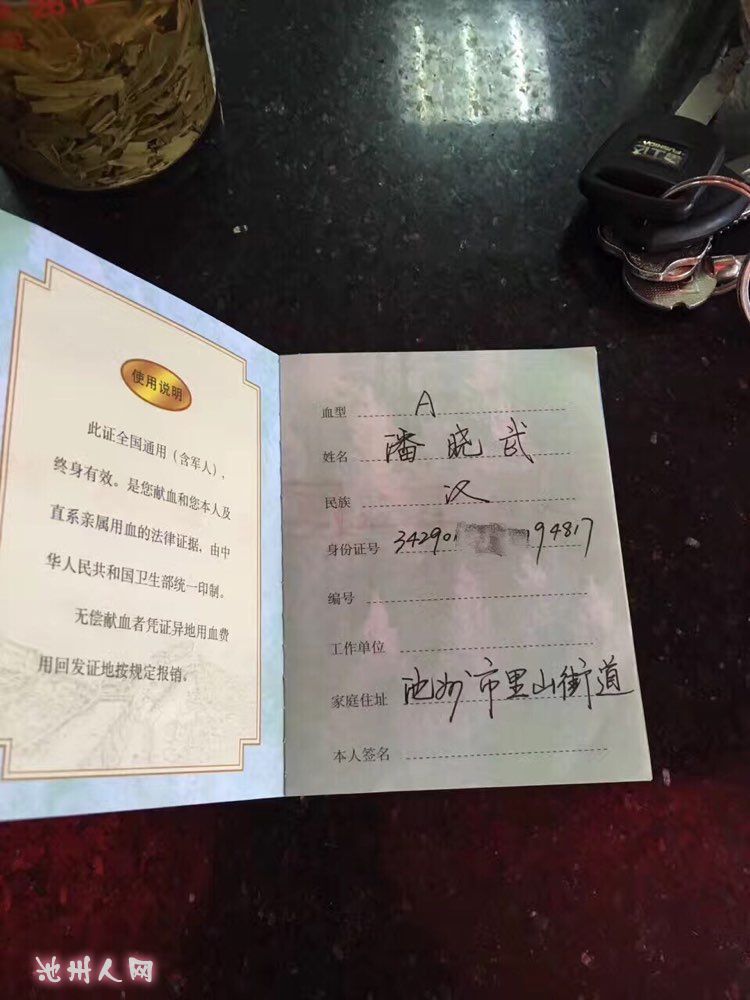 使用说明
此证全国通用（含军人），
终身有效。是您献血和您本人及
直系亲属用血的法律证据，由中
华人民共和国卫生部统一印制。
无偿献血者凭证异地用血费
用回发证地按规定报销。
血型 A
姓名 潘晓武
民族 汉
身份证号 342901 194817
编号
工作单位
家庭住址 池州市里山街道
本人签名
FUSHIDA
池州人网